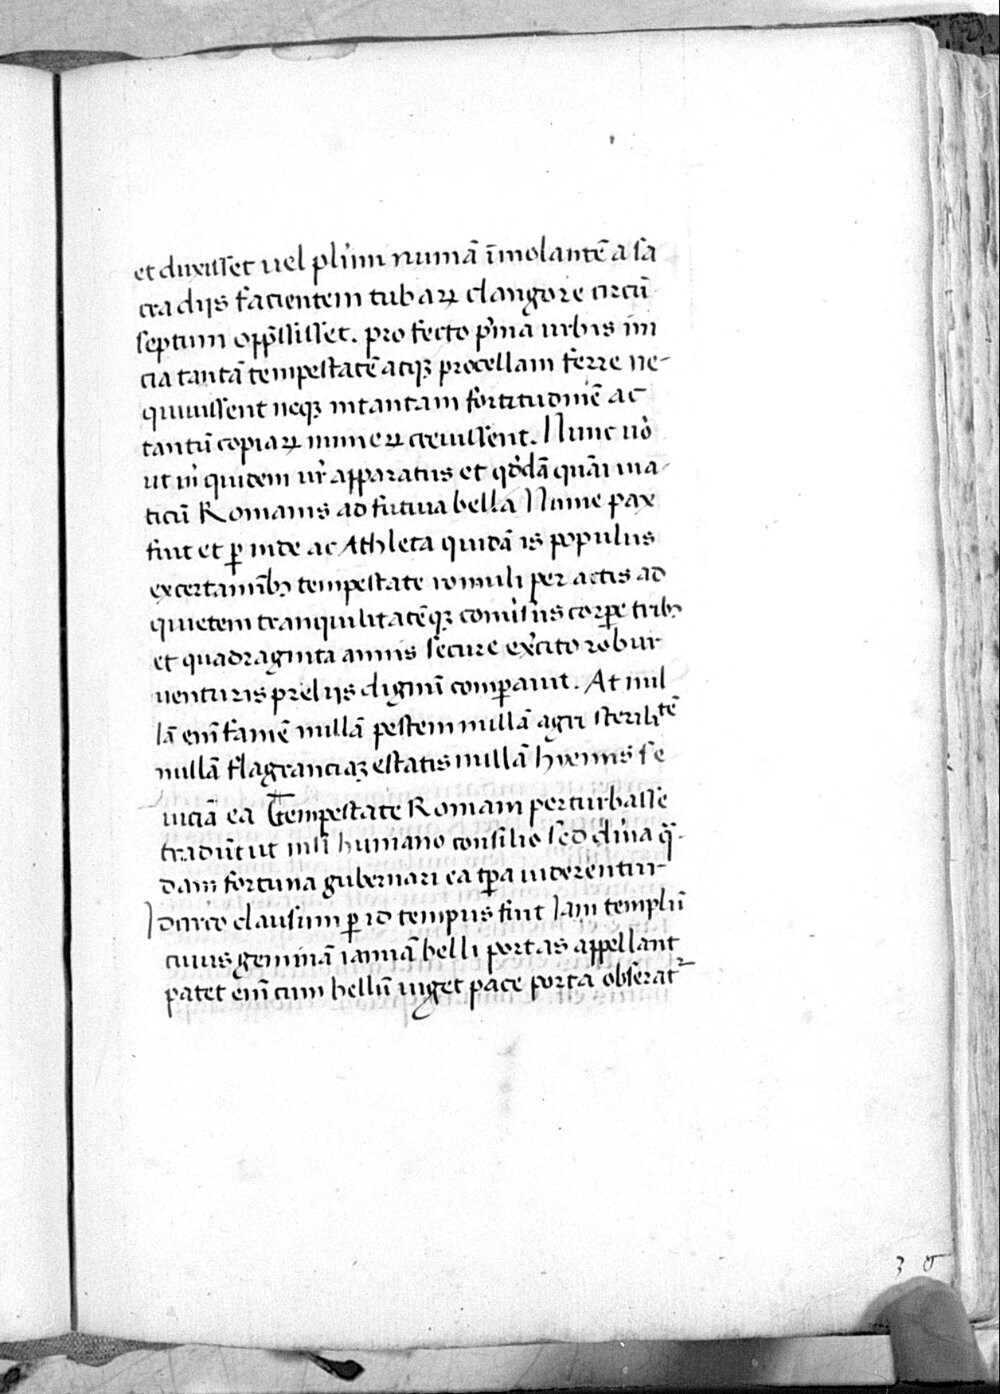 et duxisset uel plim̄ numā īmolantē a sa
cra diis facientem tubaꝝ clangore circū
septum opp̄ssisset. profecto p̄ma urbis ini
cia tantā tempestatē atqꝫ procellam ferre ne-
quiuissent neqꝫ intantam fortitudinē ac
tantū copiaꝝ munieꝝ creuissent. Nunc uo᷎
ut m̄ quidem ur̄ apparatus et qᷓdā quāi ina-
ticū Romanis ad futura bella Nume pax
fuit et ꝑ inde ac Athleta quidā is populus
excertaminibꝫ tempestate romuli per actis ad
quietem tranquilitatēqꝫ corꝑe tribꝫ
et quadraginta annis secure ex̄cito robur
uenturis preliis dignū comꝑauit. At nul
lā enī famē nullā pestem nullā agri sterilitē
nullā flagranciaꝫ estatis nullā hiemis se
uiciā ea tempestate Romam perturbasse
tradūt ut nisi humano consilio sed diūa q̄-
dam fortuna gubernari ea tp̄a uiderentur
Idcirco clausum ꝑ id tempus fuit Iani templū
cuius geminā ianuā belli portas appellant
patet enī cum bellū uiget pace porta obserat᷑
3 8